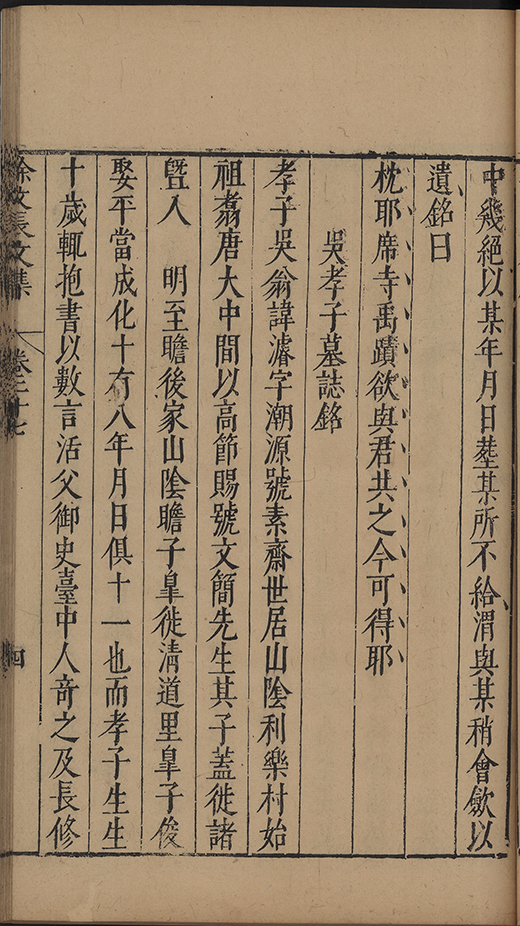 中幾絕以某年月日塟某所不給渭與某稍會歛以
遺銘曰
枕耶席寺禹蹟欲與君共之今可得耶
吳孝子墓誌銘
孝子吳翁諱濬字潮源號素齋世居山陰利樂村始
祖翥唐大中間以高節賜號文簡先生其子蓋徙諸
暨入　明至瞻後家山陰瞻子皐徙清道里皐子俊
娶平當成化十有八年月日俱十一也而孝子生生
十歲輒抱書以數言活父御史臺中人奇之及長修
徐文長文集　卷二十七　四